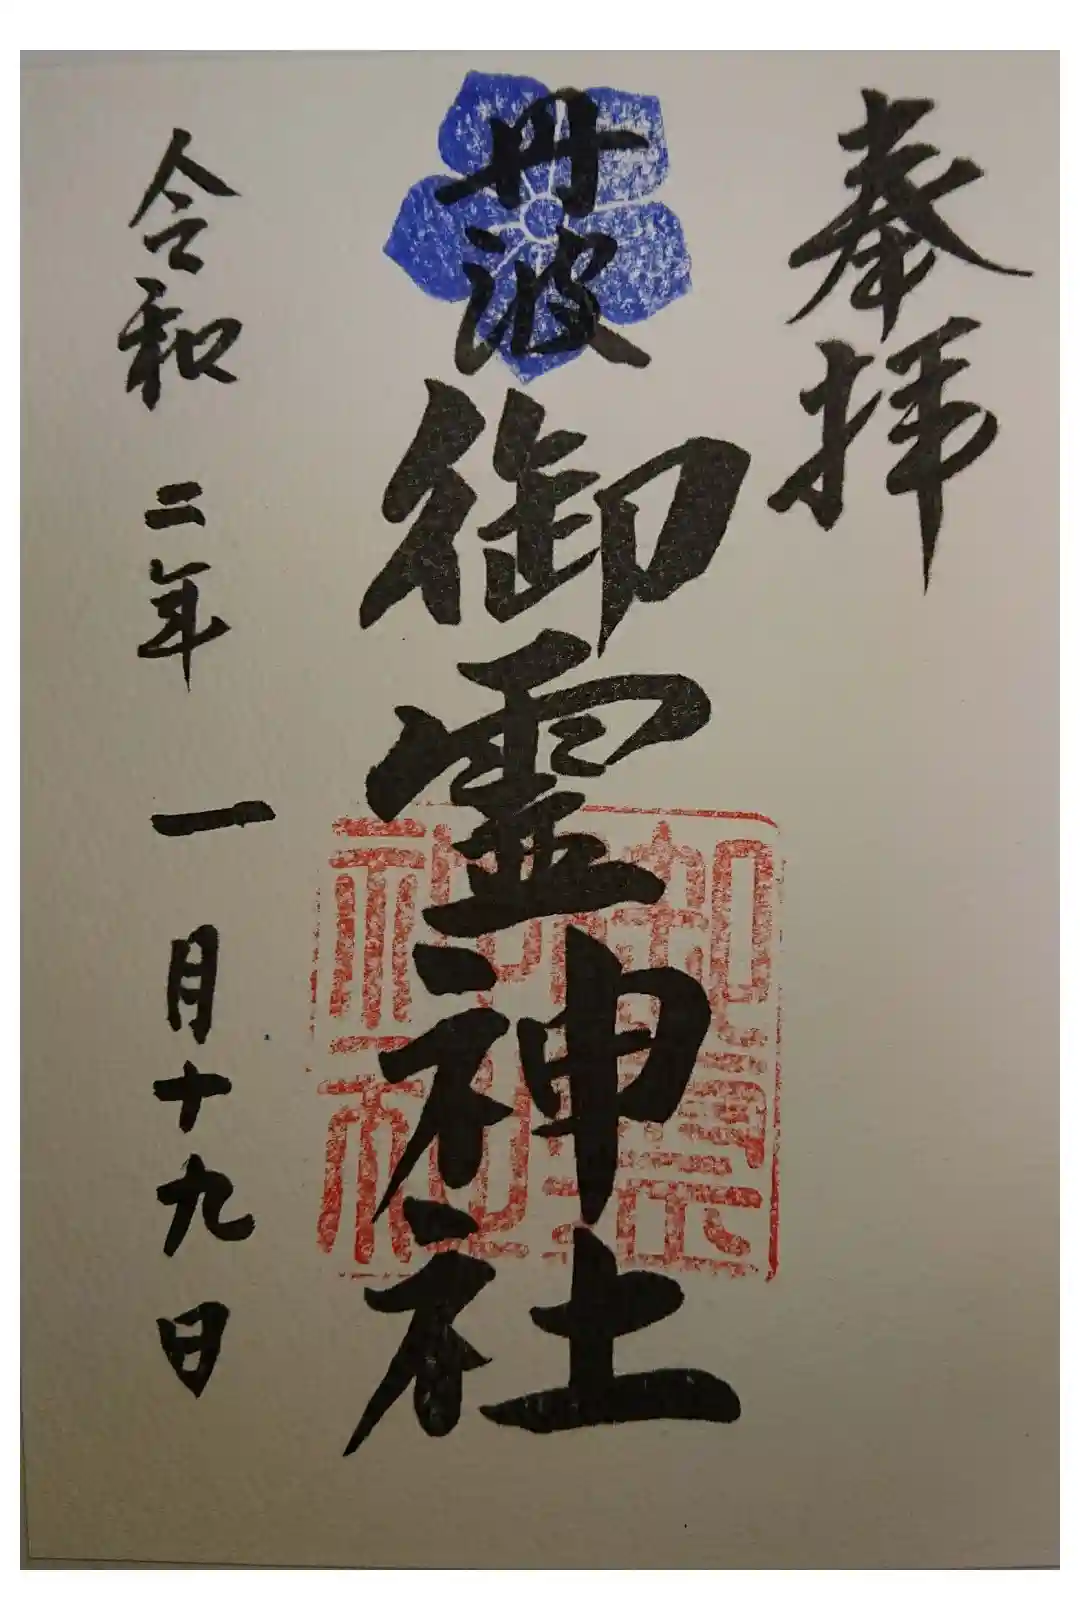 奉拝
丹波
御霊神社
御霊神社
令和二年一月十九日